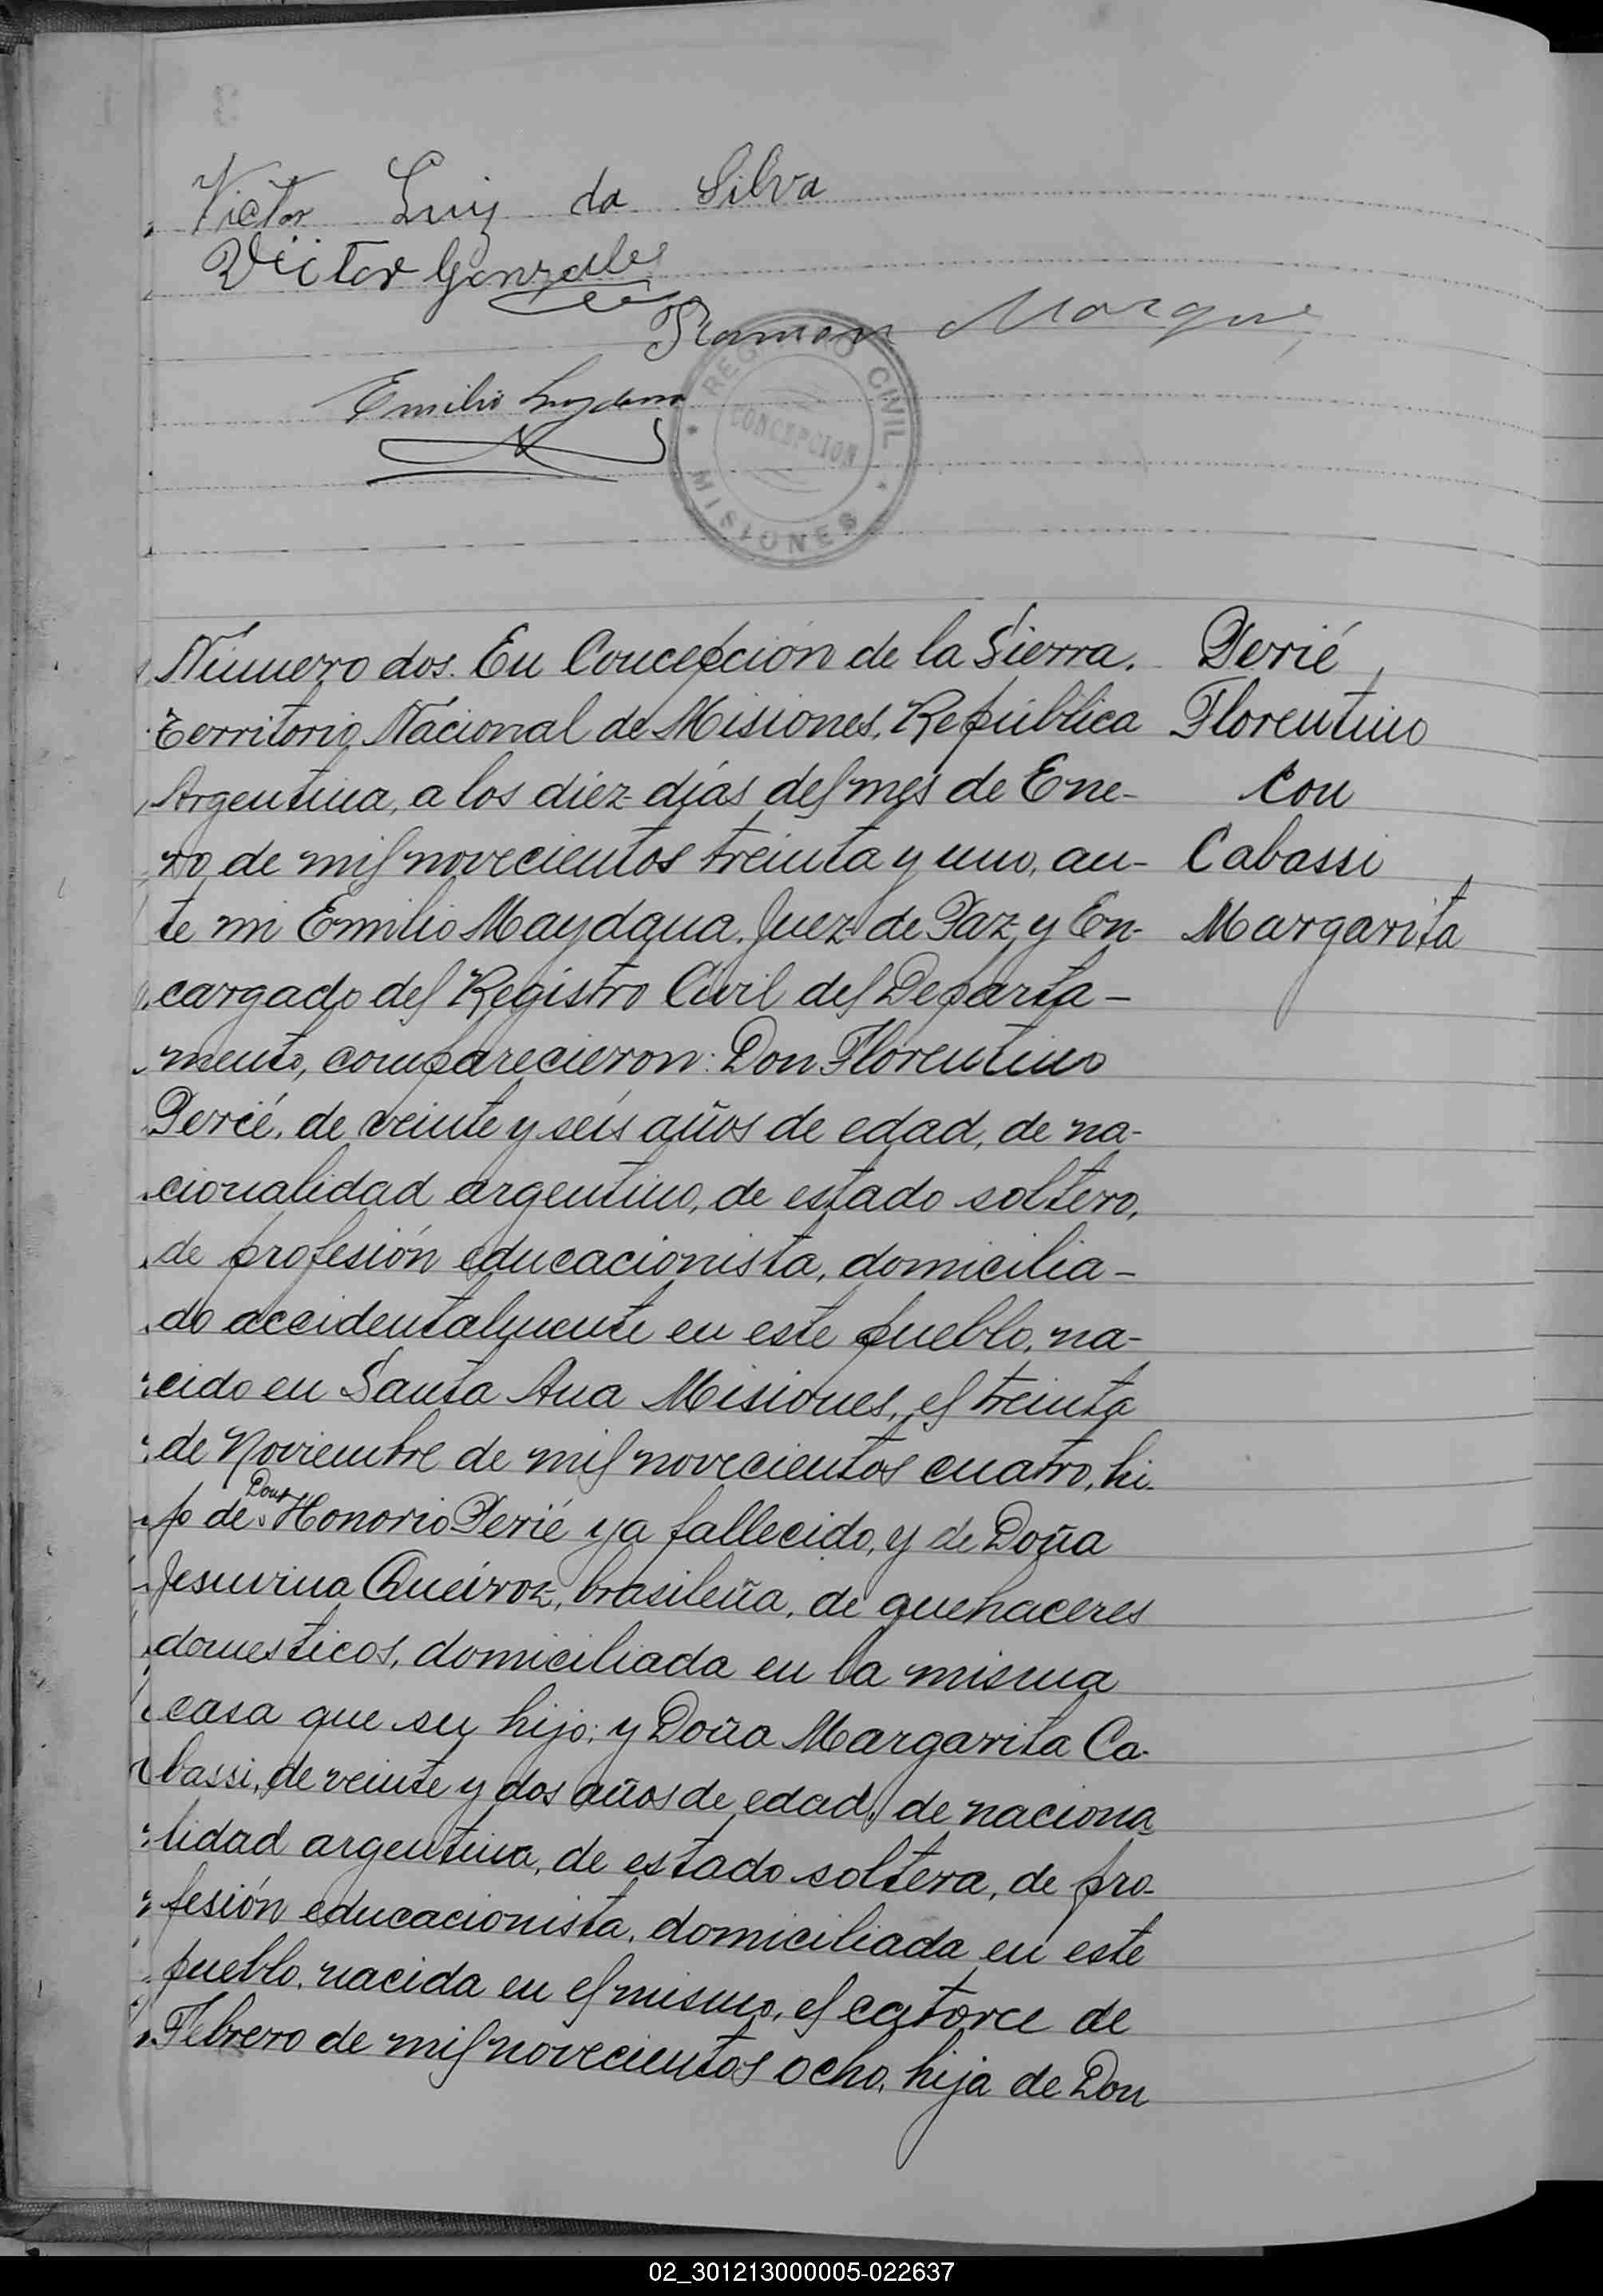 Victor Luiz da Silva
Victor Gonzales
Ramon Marque
Emilio Maydana
REGISTRO CIVIL
CONCEPCION
MISIONES
Número dos. En Concepción de la Sierra,
Territorio Nacional de Misiones, República
Argentina, a los diéz días del mes de Ene-
ro de mil novecientos treinta y uno, an-
te mi Emilio Maydana, Juez de Paz y En-
cargado del Registro Civil del Departa-
mento, comparecieron: Don Florentino
Perié, de veinte y seis años de edad, de na-
cionalidad argentino, de estado soltero,
de profesión educacionista, domicilia-
do accidentalmente en este pueblo, na-
cido en Santa Ana Misiones, el treinta
de Noviembre de mil novecientos cuatro, hi-
jo de Don Honorio Perié ya fallecido, y de Doña
Jesuvina Queiroz, brasileña, de quehaceres
domesticos, domiciliada en la misma
casa que su hijo; y Doña Margarita Ca-
bassi, de veinte y dos años de edad, de naciona-
lidad argentina, de estado soltera, de pro-
fesión educacionista, domiciliada en este
pueblo, nacida en el mismo, el catorce de
Febrero de mil novecientos ocho, hija de Don
Perié,
Florentino
con
Cabassi
Margarita
02_301213000005-022637